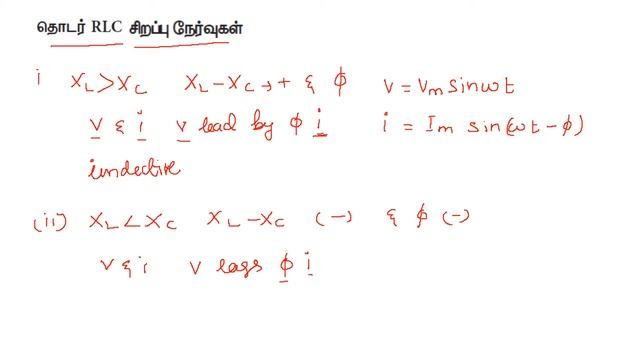 தொடர் RLC சிறப்பு நேர்வுகள்
i X_L > X_C X_L - X_C → + & φ V = V_m sin ωt
V & i V lead by φ i i = I_m sin(ωt - φ)
inductive
(ii) X_L < X_C X_L - X_C (-) & φ (-)
V & i V lags φ i